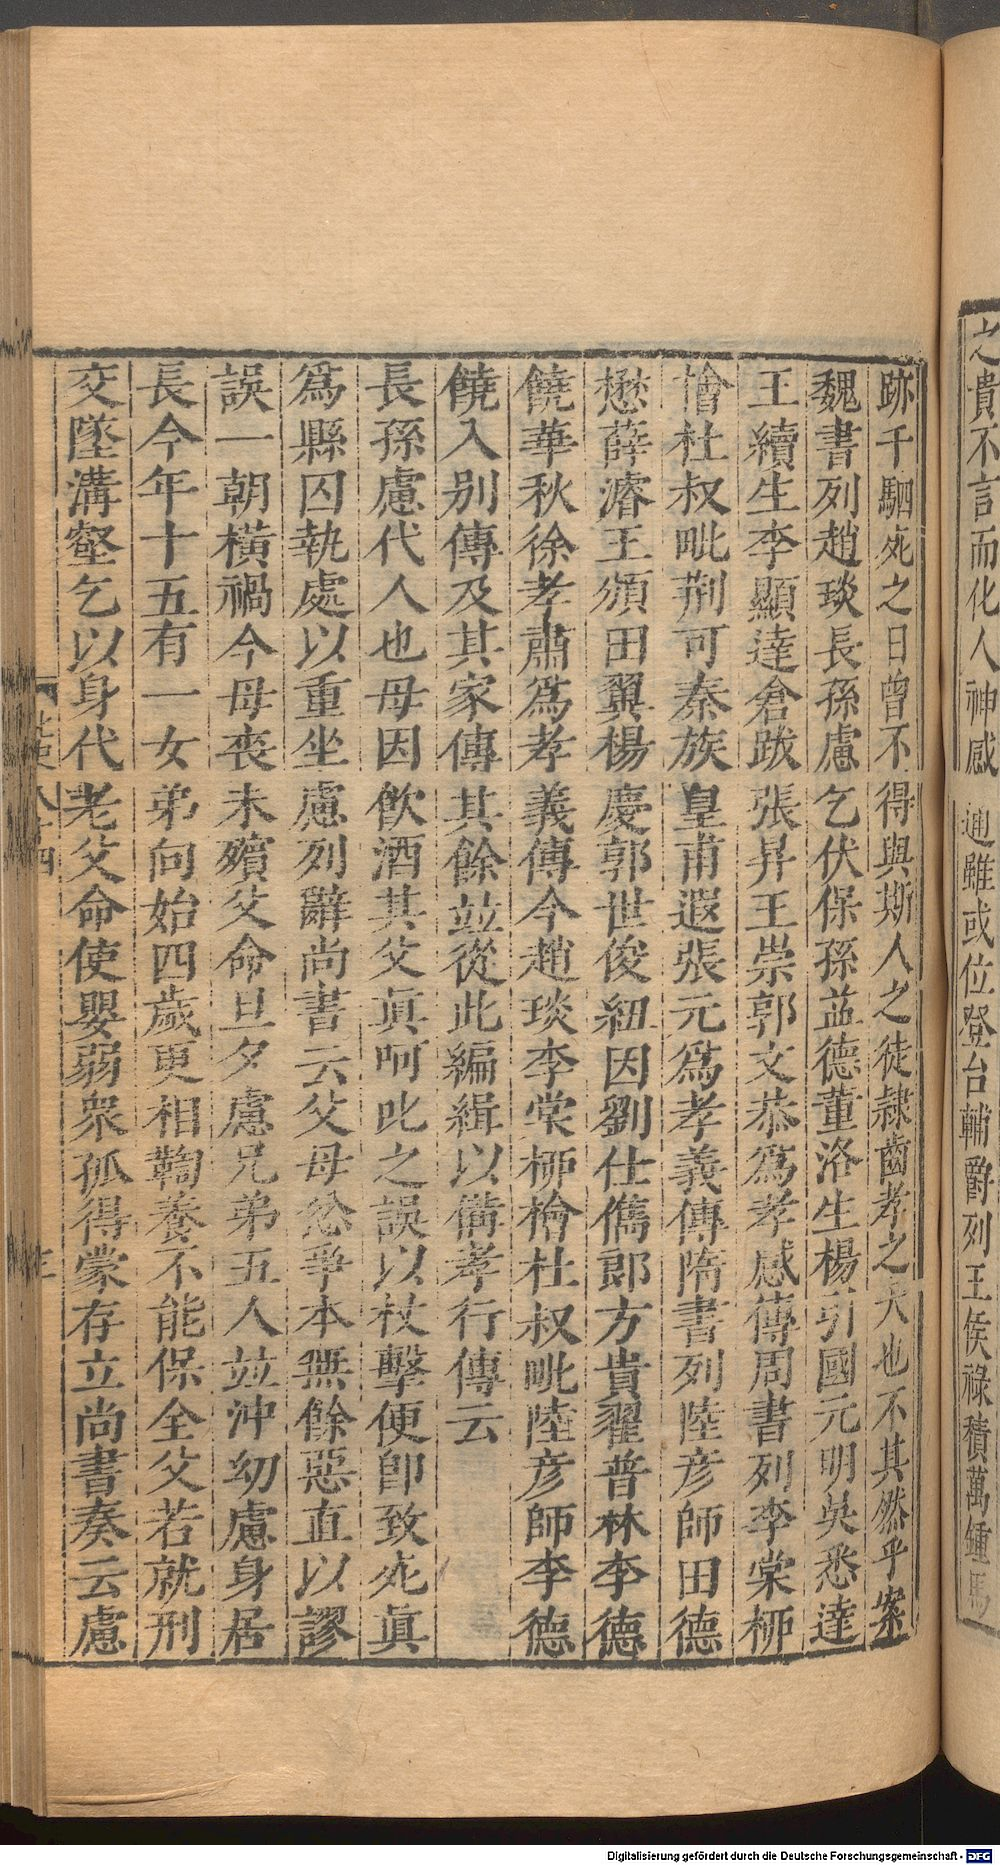 之貴不言而化人神感通雖或位登台輔爵列王侯祿積萬鍾馬
跡千駟死之日曾不得與斯人之徒隷齒孝之大也不其然乎案
魏書列趙琰長孫慮乞伏保孫益德董洛生楊引國元明吳悉達
王續生李顯達倉跋張昇王崇郭文恭爲孝感傳周書列李棠柳
檜杜叔毗荆可秦族皇甫遐張元爲孝義傳隋書列陸彦師田德
懋薛濬王頒田翼楊慶郭世俊紐因劉仕儁郎方貴翟普林李德
饒華秋徐孝肅爲孝義傳今趙琰李棠桺檜杜叔毗陸彦師李德
饒入别傳及其家傳其餘竝從此編緝以備孝行傳云
長孫慮代人也母因飲酒其父眞呵叱之誤以杖擊便卽致死眞
爲縣囚執處以重坐慮列辭尚書云父母忿爭本無餘惡直以謬
誤一朝橫禍今母喪未殯父命旦夕慮兄弟五人竝沖幼慮身居
長今年十五有一女弟向始四歲更相鞠養不能保全父若就刑
交墜溝壑乞以身代老父命使嬰弱衆孤得蒙存立尚書奏云慮
Digitalisierung gefördert durch die Deutsche Forschungsgemeinschaft - DFG